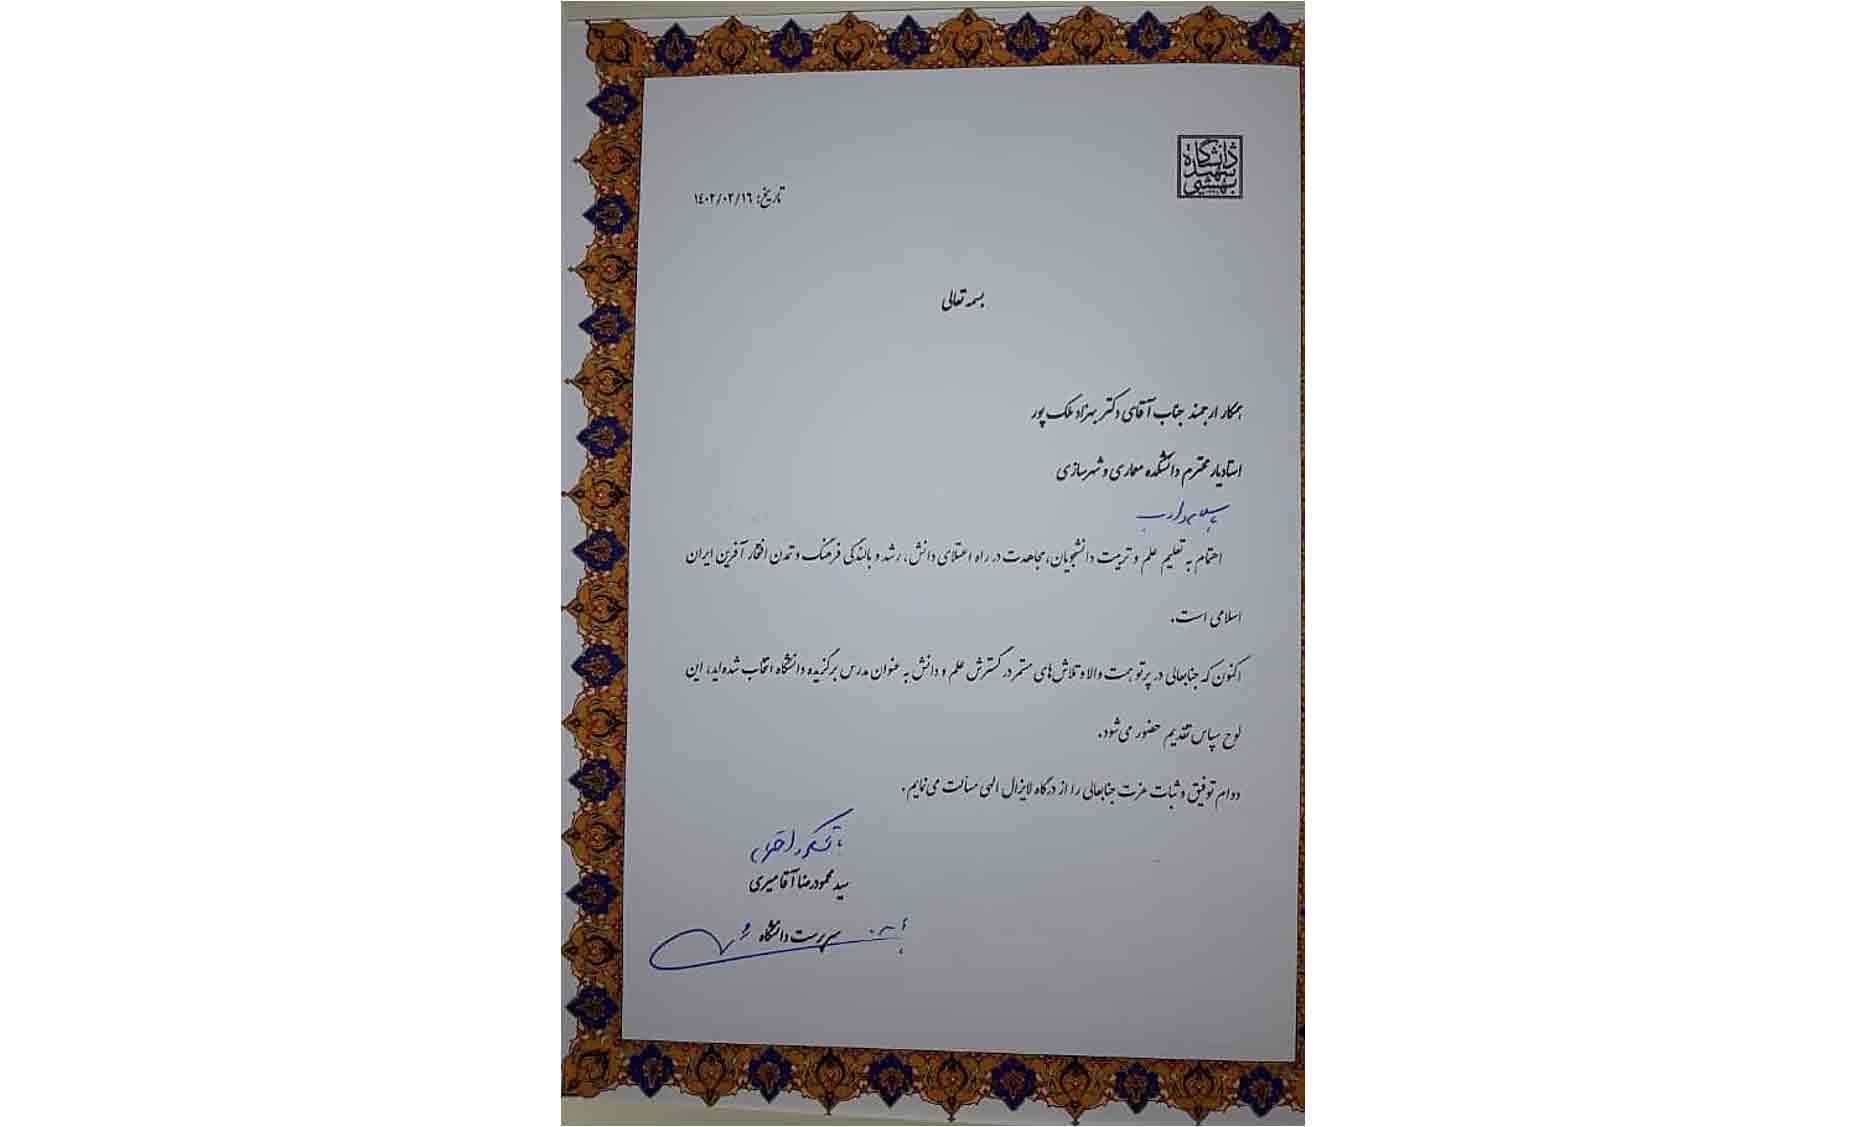 دانشگاه شهید بهشتی
تاریخ: ۱٤۰۲/۰۲/۱٦
بسمه تعالی
همکار ارجمند جناب آقای دکتر بهزاد ملک پور
استادیار محترم دانشکده معماری و شهرسازی
اهتمام به تعلیم علم و تربیت دانشجویان، مجاهدت در راه اعتلای دانش، رشد و بالندگی فرهنگ و تمدن افتخار آفرین ایران
اسلامی است.
اکنون که جنابعالی در پرتو همت والا و تلاش‌های مستمر در گسترش علم و دانش به عنوان مدرس برگزیده دانشگاه انتخاب شده‌اید، این
لوح سپاس تقدیم حضور می‌شود.
دوام توفیق و ثبات عزت جنابعالی را از درگاه لایزال الهی مسألت می‌نمایم.
سید محمودرضا آقامیری
سرپرست دانشگاه